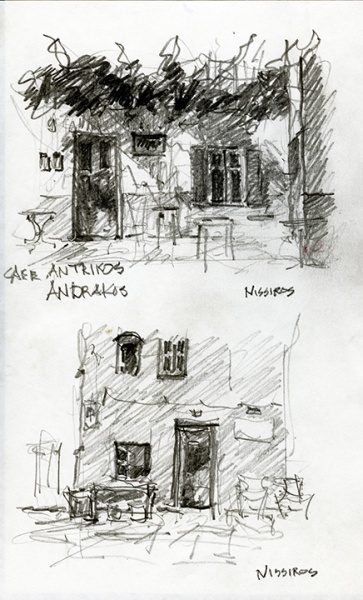 CAFE ANTRIKOS
ANDRAKOS
NISSIROS
NISSIROS